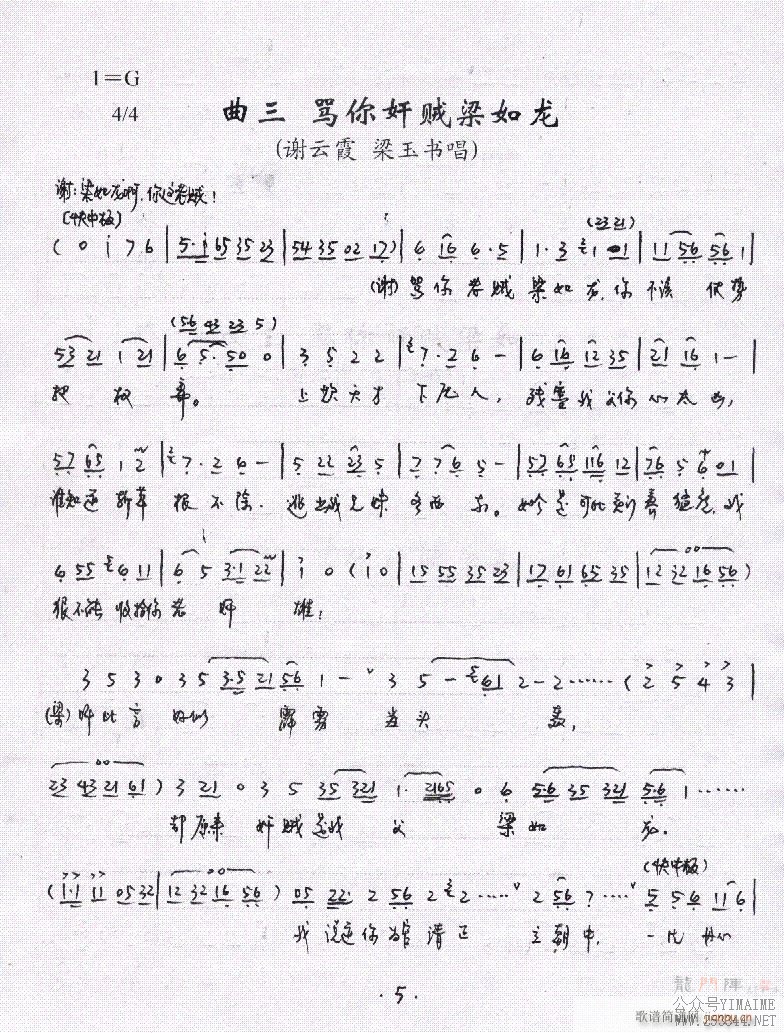 1=G
4/4
曲三 骂你奸贼梁如龙
(谢云霞 梁玉书唱)
谢:梁如龙啊,你这老贼!
(快中板)
(2321)
(0 i 7 6 | 5·i 65 35 23 | 54 35 02 17) | 6 16 6·5 | 1·3 21 01 | 11 56 56 1 |
(谢)骂你老贼梁如龙,你不该 仗势
(56 43 23 5)
53 21 1 21 | 6 5·50 0 | 3 5 2 2 | 7·2 6 - | 6 16 12 35 | 21 16 1 - |
把权弄。 上欺天子下 人, 残害我父你心太凶,
57 65 1 2 | 7·2 6 - | 5 22 23 5 | 7 7 6 5 - | 57 65 116 12 | 76 5 6 01 |
谁知道斩草根不除, 逃出我兄妹各西东。 我
6 55 6 11 | 6 5 3·1 22 | i 0 (i 0) | 15 55 35 23 | 17 61 65 35 | 12 32 16 56)
恨不能收拾你老奸雄!
3 5 3 0 3 5 3·5 21 56 1 - 3 5 - 61 2 - 2 …… (2 5 4 3 |
(梁)听此言好似霹雳当头轰,
23 43 21 61) 3 21 0 3 5 35 321 1· 2165 0 6 56 35 321 5·6 1 ……
却原来奸贼是我父梁如龙。
(快中板)
(1·1 11 05 32 | 12 32 16 56) 05 22 2 56 2 2 …… 2 56 7 …… 5 5 6 11 6 |
我说道你为官清正立朝中, 一片丹心
· 5 ·
龍門陣
公众号YIMAIME
歌谱简谱网 www.jianpu.cn